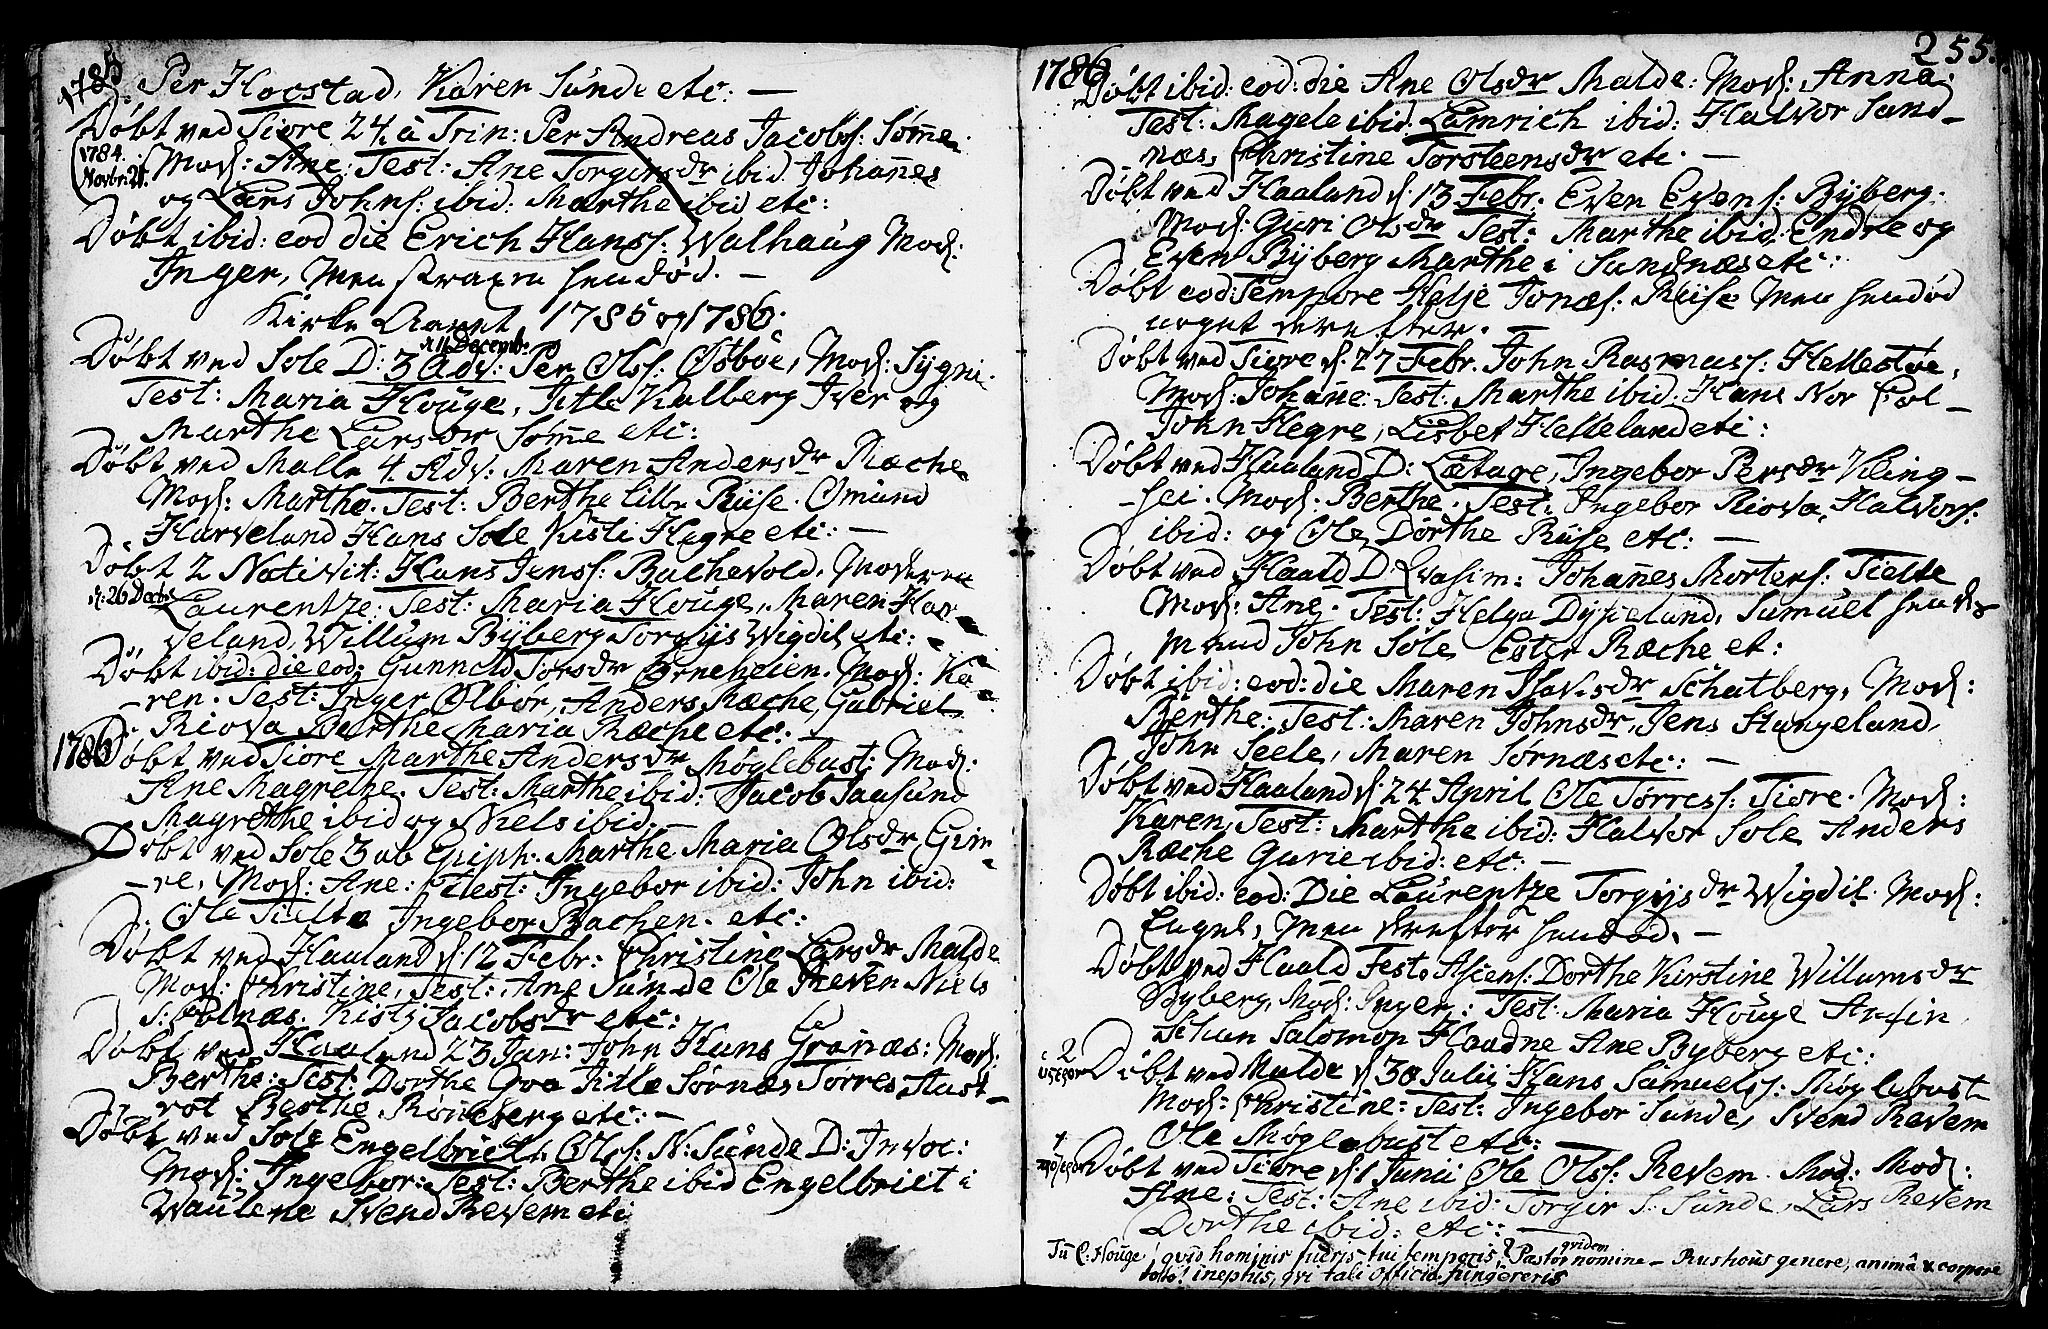 1785
Per Hogstad, Karen Sunde etc: —
Døbt ved Tiore 24 à Trin: Per Andreas Jacobs: Sømme.
1784. Novbr: 21.
Mod: Ane. Test: Ane Torgersdr ibid. Johannes
og Lars Johns: ibid: Marthe ibid etc:
Døbt ibid: eod die Erich Hanss: Walhaug Mod:
Inger, men straxen hendød. —
Kirke Aaret 1785 og 1786.
d. 11 Decemb.
Døbt ved Sole D: 3 Adv: Per Olss: Østbøe, Mod: Sygni.
Test: Maria Houge, Jitle Kalberg Iver og
Marthe Larsdr Sømme etc:
Døbt ved Malle 4. Adv: Maren Andersdr Ræche
Mod: Marthe. Test: Berthe lille Riise. Osmund
Harveland Hans Sole Kisti Hegre etc: —
Døbt 2 Nativit: Hans Jenss: Bachevold, Moderen
d: 26 Decbr
Laurentze: Test: Maria Houge, Maren Har-
veland, Willum Byberg Torgiis Wigdil etc:
Døbt ibid: die eod: Gunneld Torsdr Orneheien. Mod: Ka-
-ren. Test: Inger Ølbør, Anders Ræche, Gabriel
Riova Berthe Maria Ræche etc: —
1786
Døbt ved Tiore Marthe Andersdr Møglebust: Mod:
Ane Magrethe. Test: Marthe ibid: Jacob Jaasund
Magrethe ibid og Niels ibid —
Døbt ved Sole 3 ab Epiph. Marthe Maria Olsdr Gim-
-re, Mod: Ane: Test: Ingebor ibid: John ibid:
Ole Tielte Ingebor Bachen. etc:
Døbt ved Haaland d: 12 Febr: Christine Larsdr Malde
Mod: Christine, Test: Ane Sunde Ole Reven Niels
S: Olnæs. Kisti Jacobsdr etc:
Døbt ved Haaland 23 Jan: John Hans Granæs: Mod:
Berthe: Test: Dorthe Goa Jitle Sørnæs Tørres Aust-
rot Berthe Røneberg etc: —
Døbt ved Sole Engelbriet Olss: N: Sunde D: Invoc:
Mod: Ingebor: Test: Berthe ibid Engelbriet i
Waulene Svend Revem etc
255.
1786
Døbt ibid: eod: die Ane Olsdr Malde: Mod: Anna.
Test: Magele ibid. Lamrich ibid: Halvor Sand-
næs, Christine Torsteensdr etc. —
Døbt ved Haaland d. 13 Febr. Even Evens: Byberg.
Mod: Guri Olsdr Test: Marthe ibid: Endre og
Even Byberg Marthe i Sandnæs etc:
Døbt eod: Tempore Helje Jonæs: Riise men hendød
noget derefter. —
Døbt ved Tiore d. 27 Febr. John Rasmuss: Hellestøe,
Mod: Johanne: Test: Marthe ibid. Hans Nor Col-
John Hegre, Lisbet Helleland etc:
Døbt ved Haaland D: Lætare, Ingebor Persdr Kling-
-hei. Mod: Berthe. Test: Ingebor Riova, Halvors:
ibid: og Ole, Dorthe Riise etc: —
Døbt ved Haald D. Qvasim: Johannes Mortens: Tielte
Mod: Ane. Test: Helga Dysieland, Samuel
John Sole Ester Ræche et:
Døbt ibid: eod: die Maren Schatberg, Mod:
Berthe: Test: Maren Johnsdr, Jens Stangeland,
John Seele, Maren Sørnæs etc: —
Døbt ved Haaland d: 24 April Ole Tørress: Tiore. Mod:
Karen, Test: Marthe ibid: Halvor Sole Anders
Ræche Gurie ibid: etc: —
Døbt ibid: eod: Die Laurentze Torgiisdr Wigdil. Mod:
Engel, men derefter hendød. —
Døbt ved Haald Festo Ascens: Dorthe Kirstine Willumsdr
Byberg, Mod: Inger: Test: Maria Houge
Salomon Haadne Ane Byberg etc:
Døbt ved Malde d 30 Julii Hans Samuelss: Møglebust
Mod: Christine: Test: Ingebor Sunde, Svend Revem
Ole Møglebust etc:
Døbt ved Tiore d: 1 Junii Ole Olss: Revem. Mod: Mod:
Ane: Test: Ane ibid: Torgir S: Sunde, Lars Revem
Dorthe ibid: etc: —
Tu C: Houge! qvid hominis fueris tui temporis? Pastor qvidem nomine — Rusticus genere, animâ & corpore
toto! ineptus, qvi tali officio fungereris